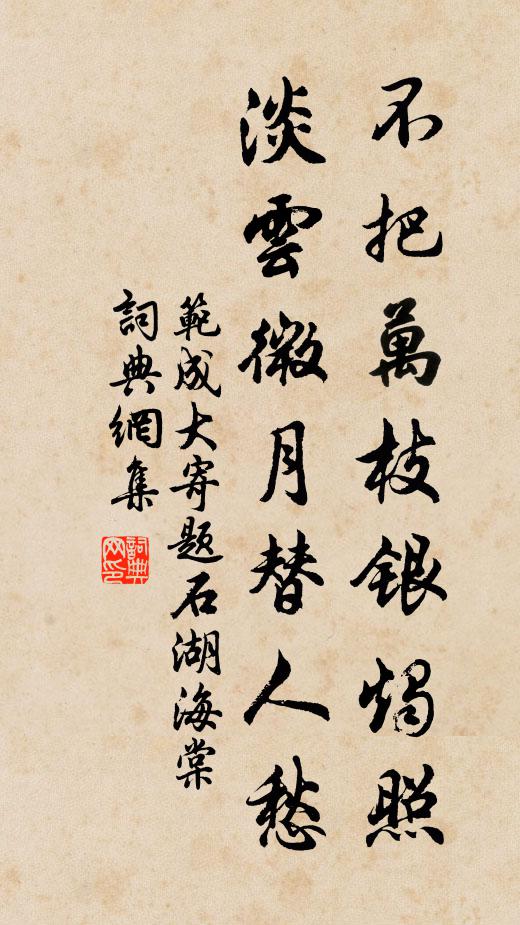 不把萬枝銀燭照
淡雲微月替人愁
範成大寄题石湖海棠
詞典網集
詞典網印